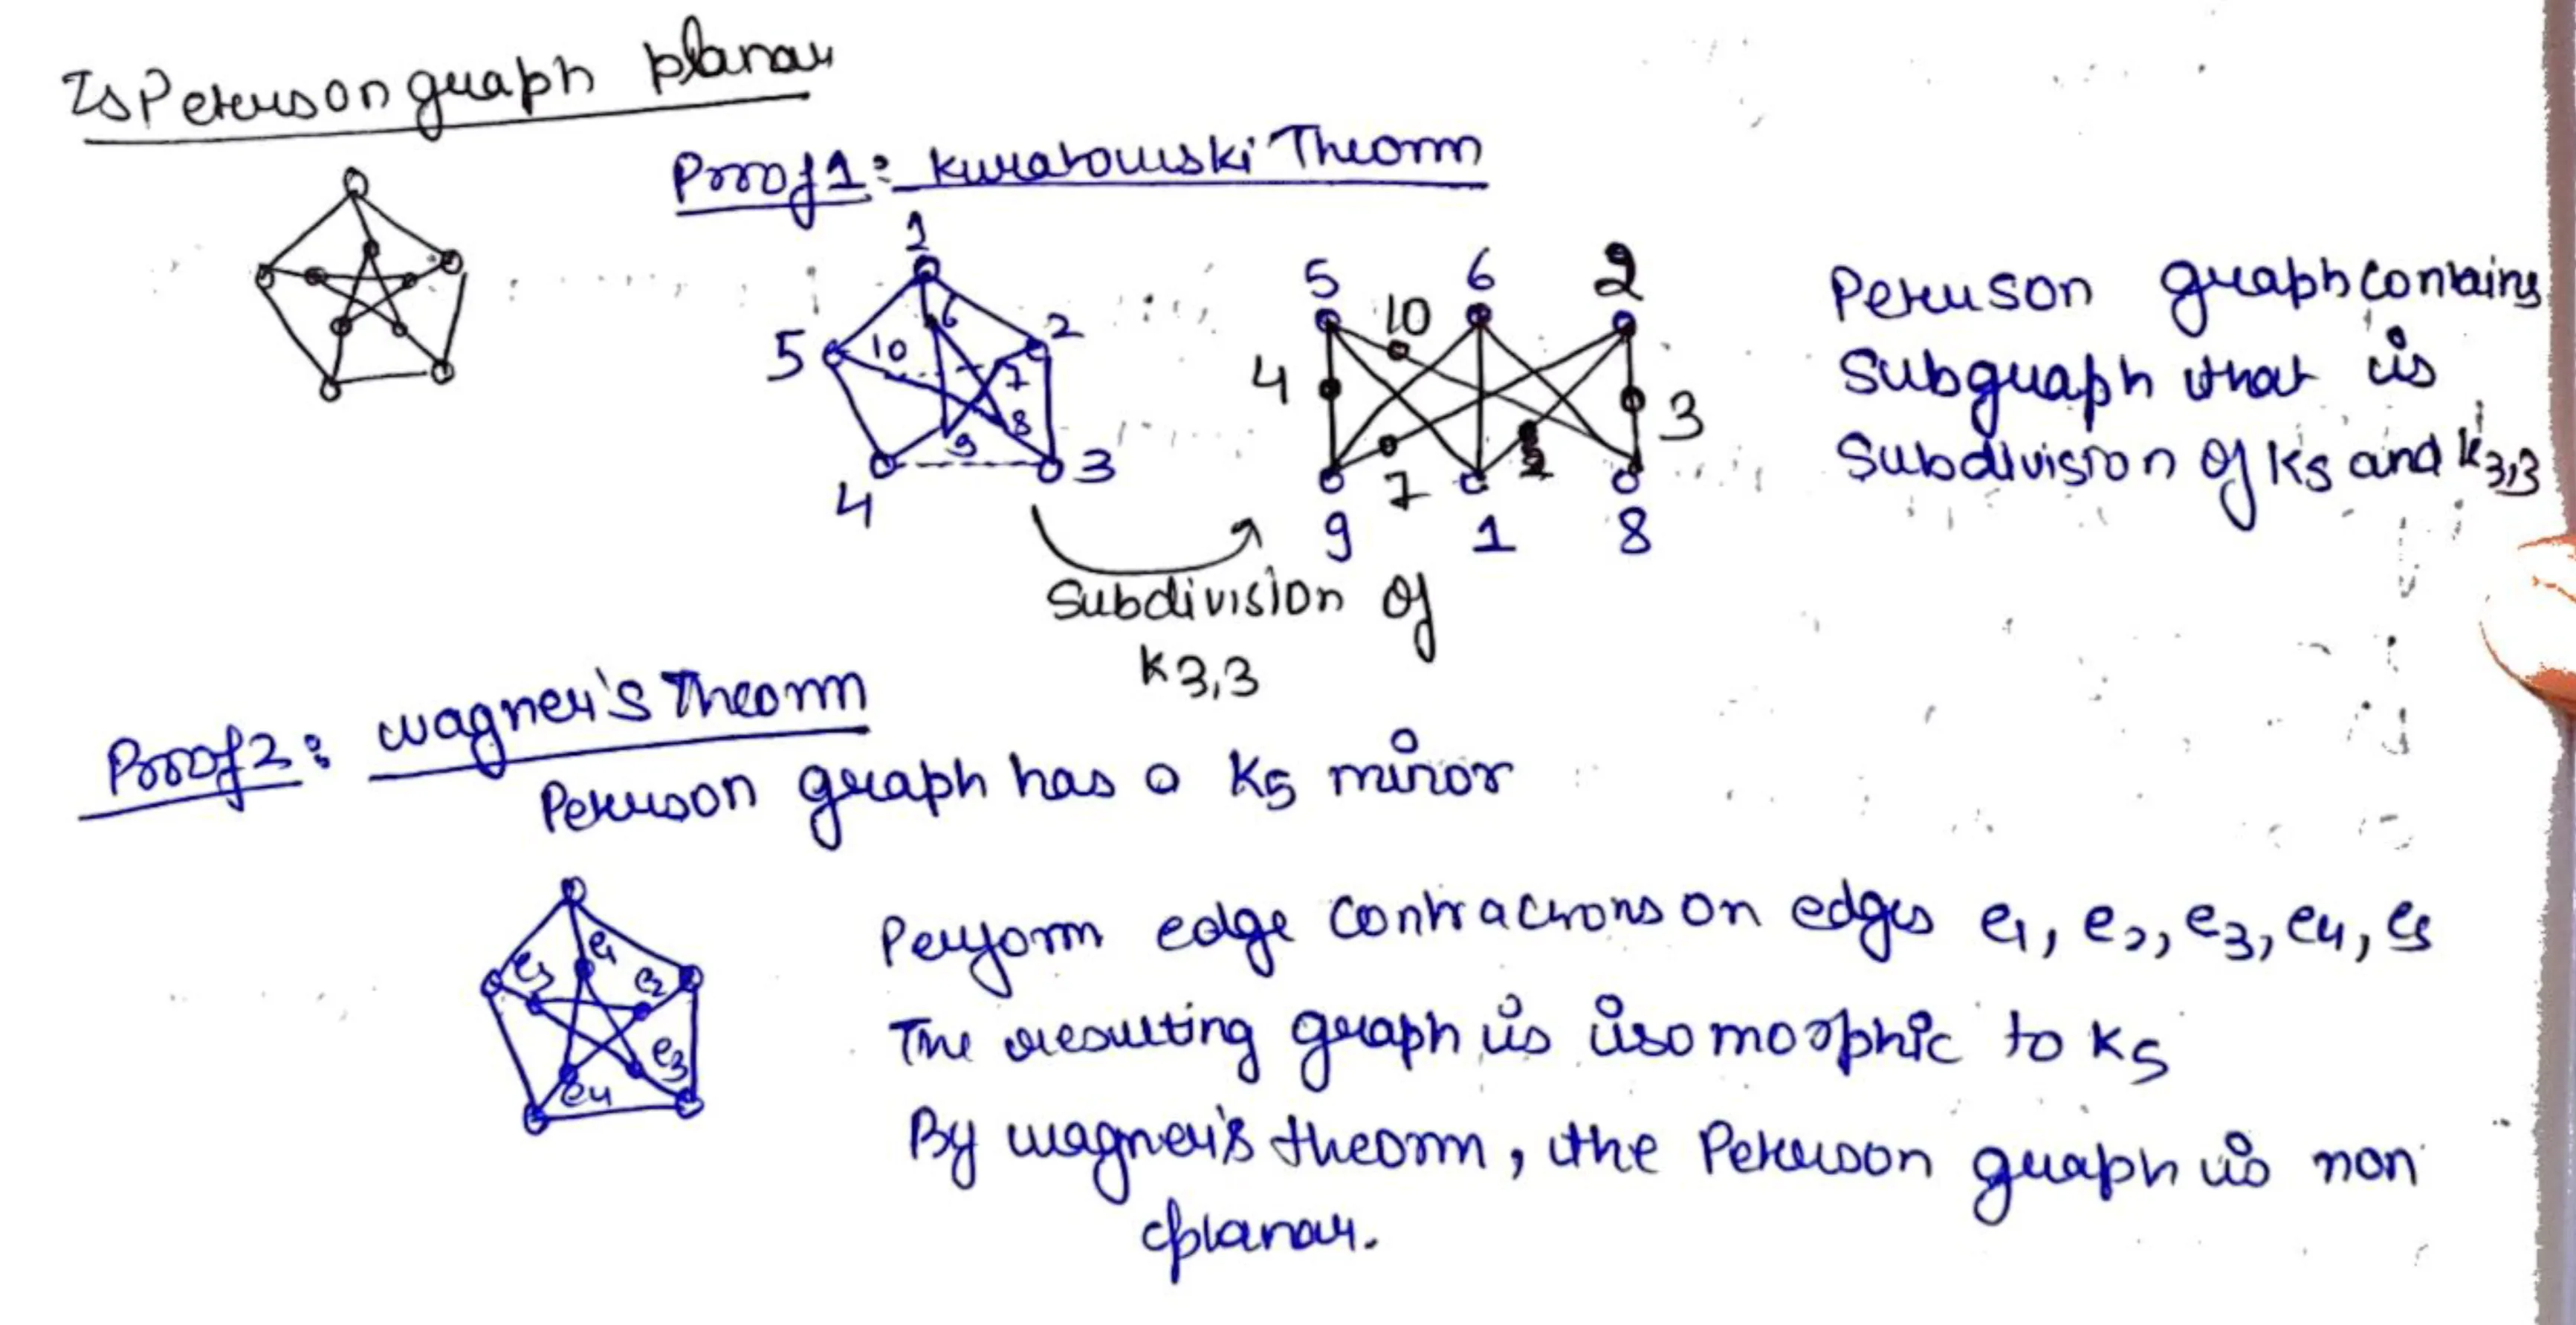 Is Peterson graph planar
Proof 1: kuratowski Theorm
1
5 10 6 2
7
8
9
4 3
5 6 2
10
4 3
7
9 1 8
Subdivision of
K3,3
Peterson graph contains
Subgraph that is
Subdivision of K5 and K3,3
Proof 2: wagner's Theorm
Peterson graph has a K5 minor
e1
e5 e2
e3
e4
Perform edge contractions on edges e1, e2, e3, e4, e5
The resulting graph is isomorphic to K5
By wagner's theorm, the Peterson graph is non
planar.